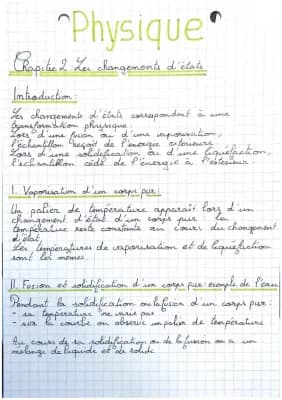 Physique
Chapitre 2 Les changements d'états
Introduction:
Les changements d'états correspondent à une
transformation physique.
Lors d'une fusion ou d'une vaporisation,
l'échantillon reçoit de l'énergie exterieure.
Lors d'une solidification ou d'une liquéfaction,
l'échantillon cède de l'énergie à l'exterieur.
I. Vaporisation d'un corps pur:
Un palier de température apparaît lors d'un
changement d'état d'un corps pur la
température reste constante au cours du changement
d'état.
Les températures de vaporisation et de liquéfaction
sont les mêmes.
II. Fusion et solidification d'un corps pur: exemple de l'eau
Pendant la solidification ou la fusion d'un corps pur:
- sa température ne varie pas
- sur la courbe on observe un palier de température
Au cours de sa solidification ou de la fusion on a un
mélange de liquide et de solide